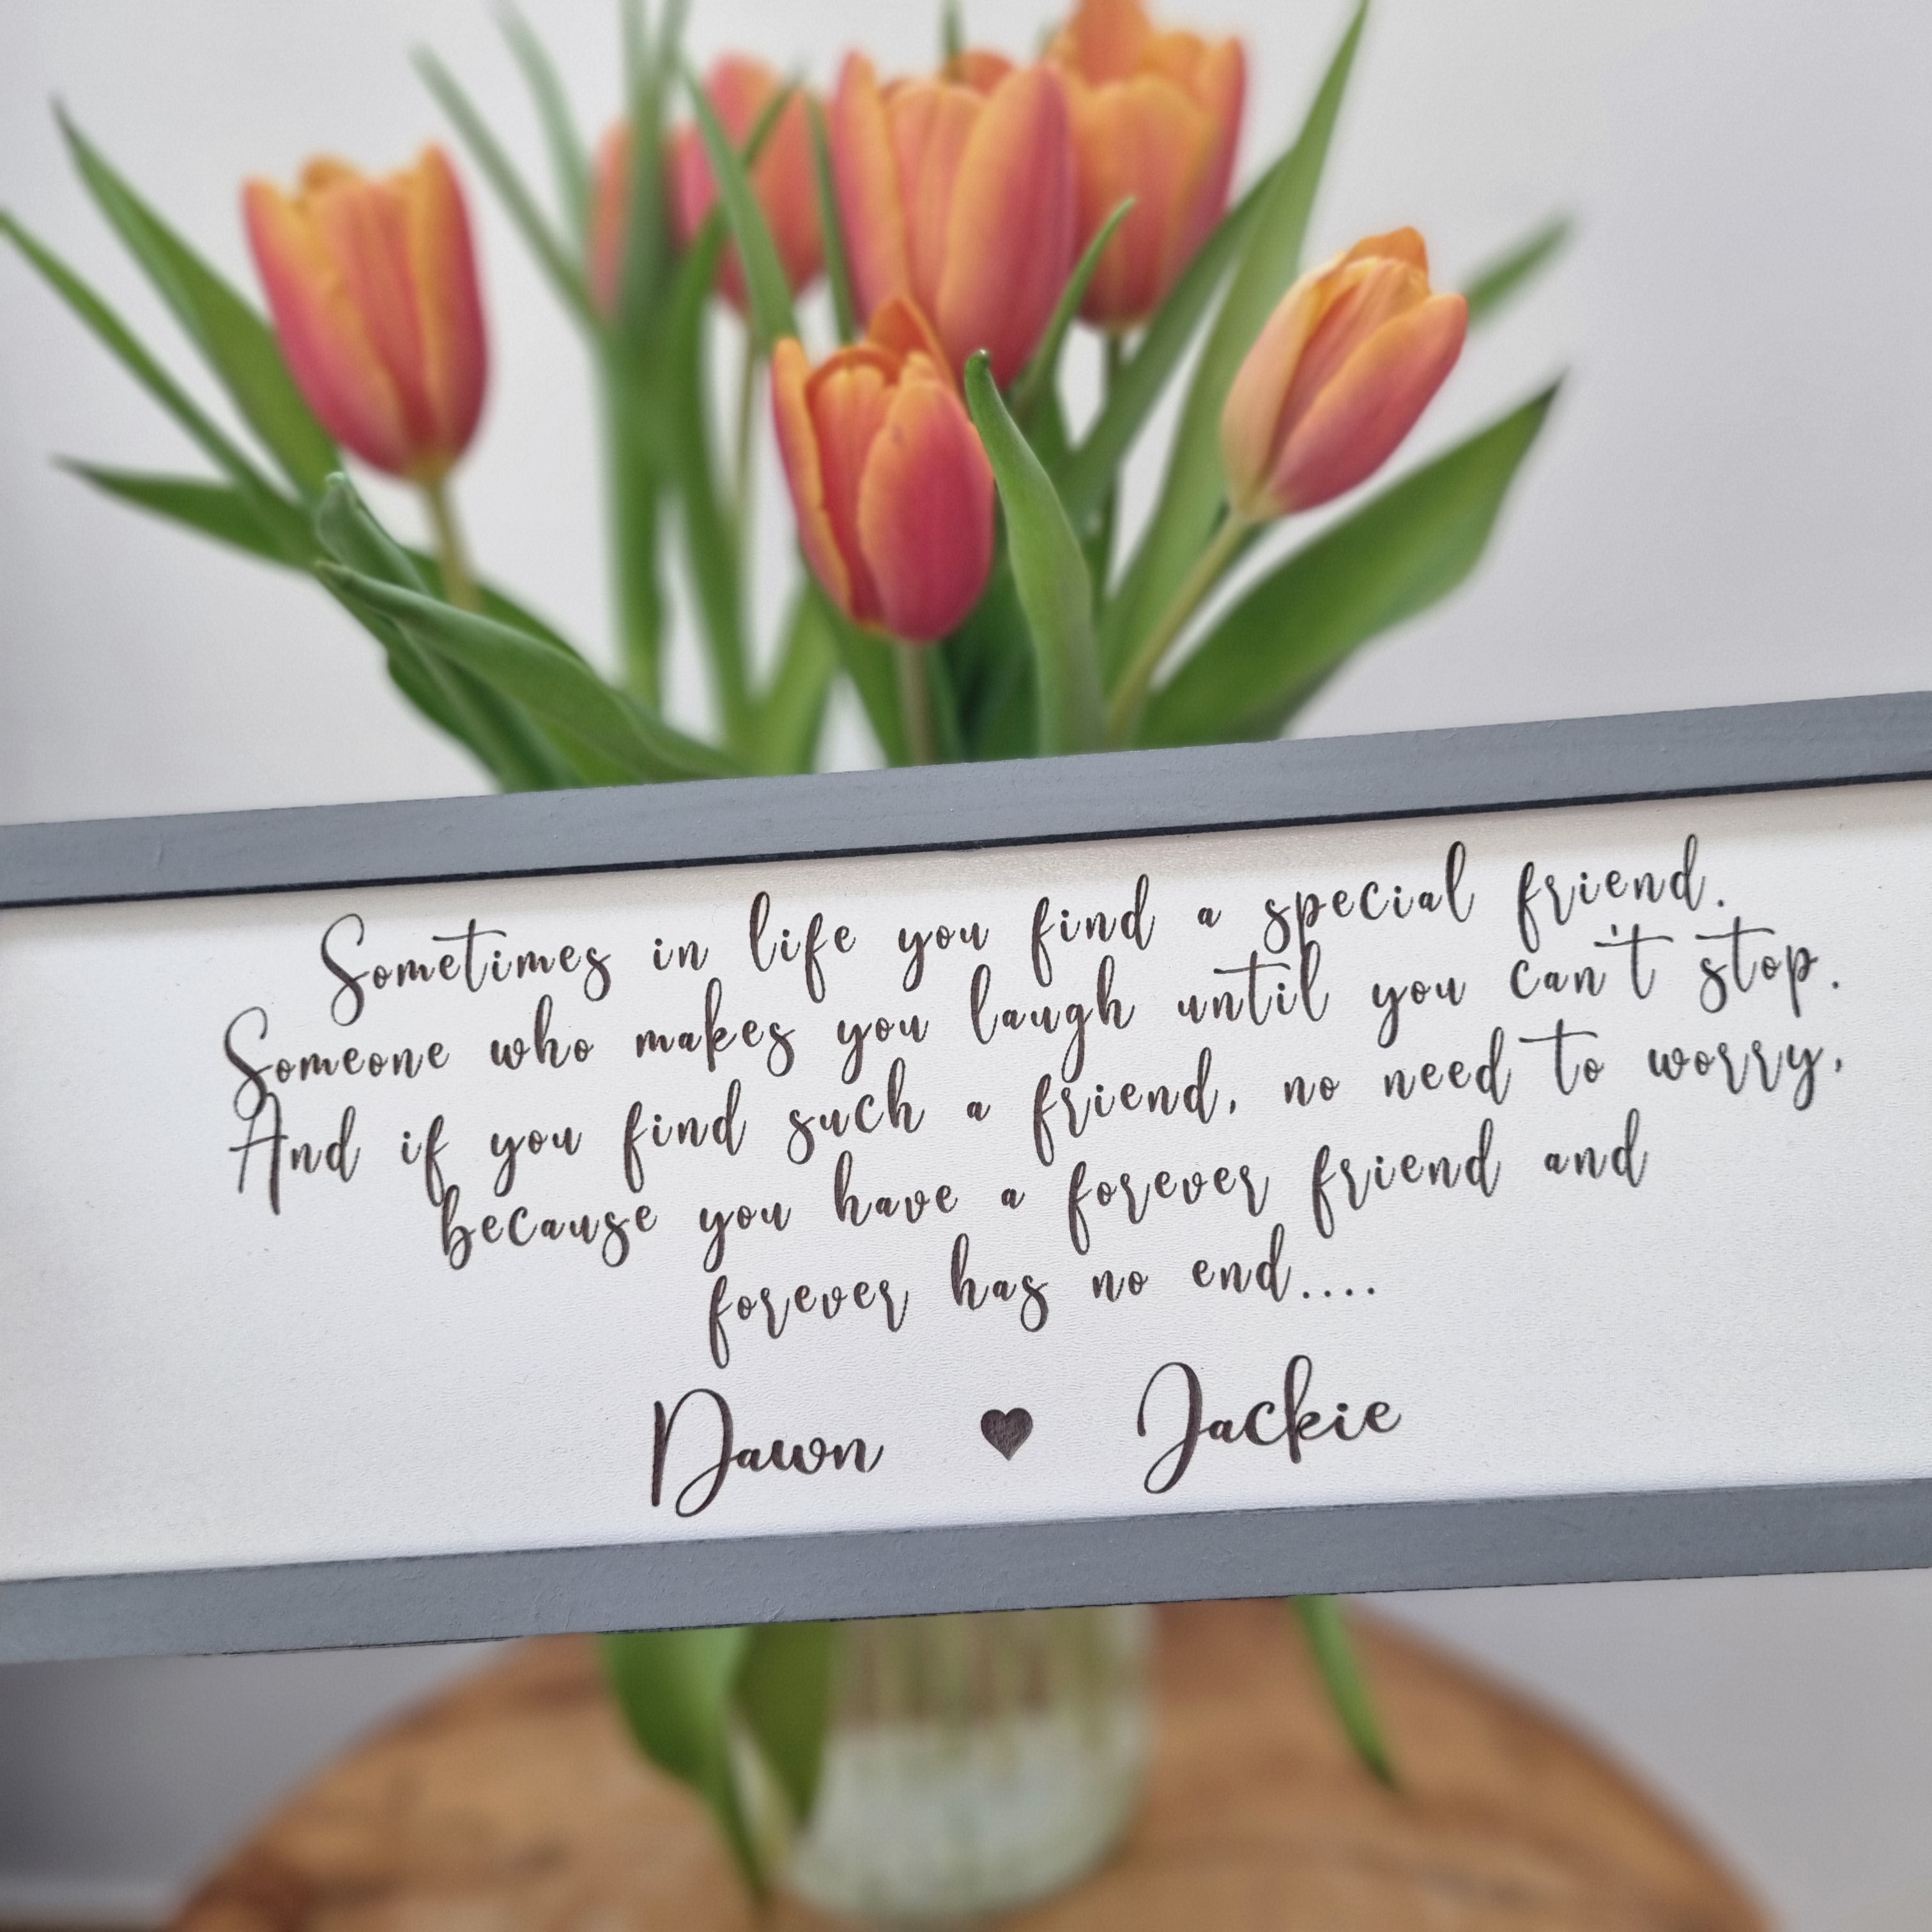 Sometimes in life you find a special friend.
Someone who makes you laugh until you can't stop.
And if you find such a friend, no need to worry,
because you have a forever friend and
forever has no end....
Dawn ♥ Jackie